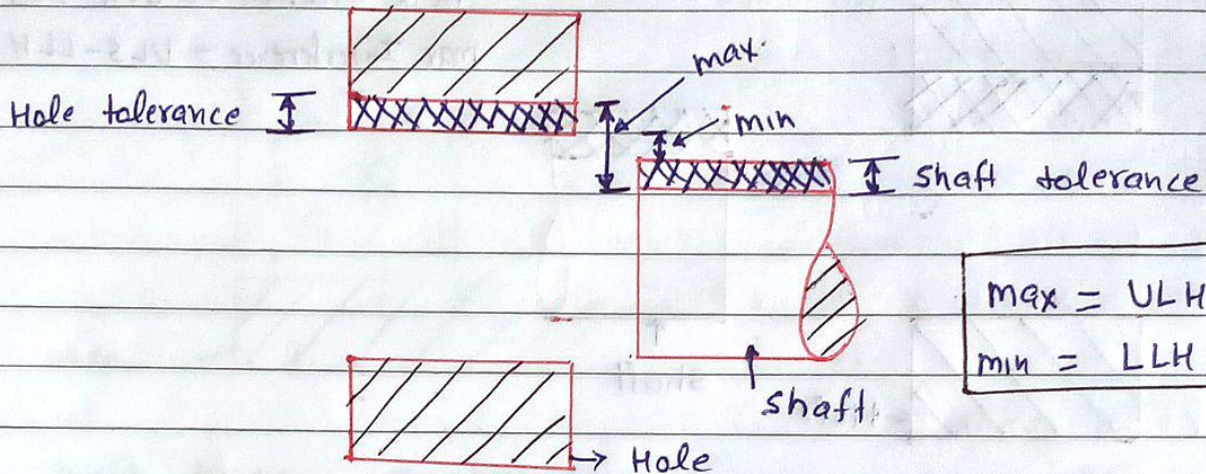 max.
Hole tolerance
min
Shaft tolerance
max = ULH
min = LLH
shaft
Hole